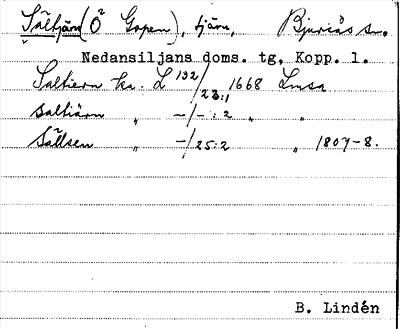 Sältjärn (Ö Gopen), tjärn, Bjursås sn.
Nedansiljans doms. tg, Kopp. l.
Saltiern ka. L 132/23:1 1668 Lmsa
Saltiärn " -/-:2 " "
Sällsen " -/25:2 " 1807-8.
B. Lindén